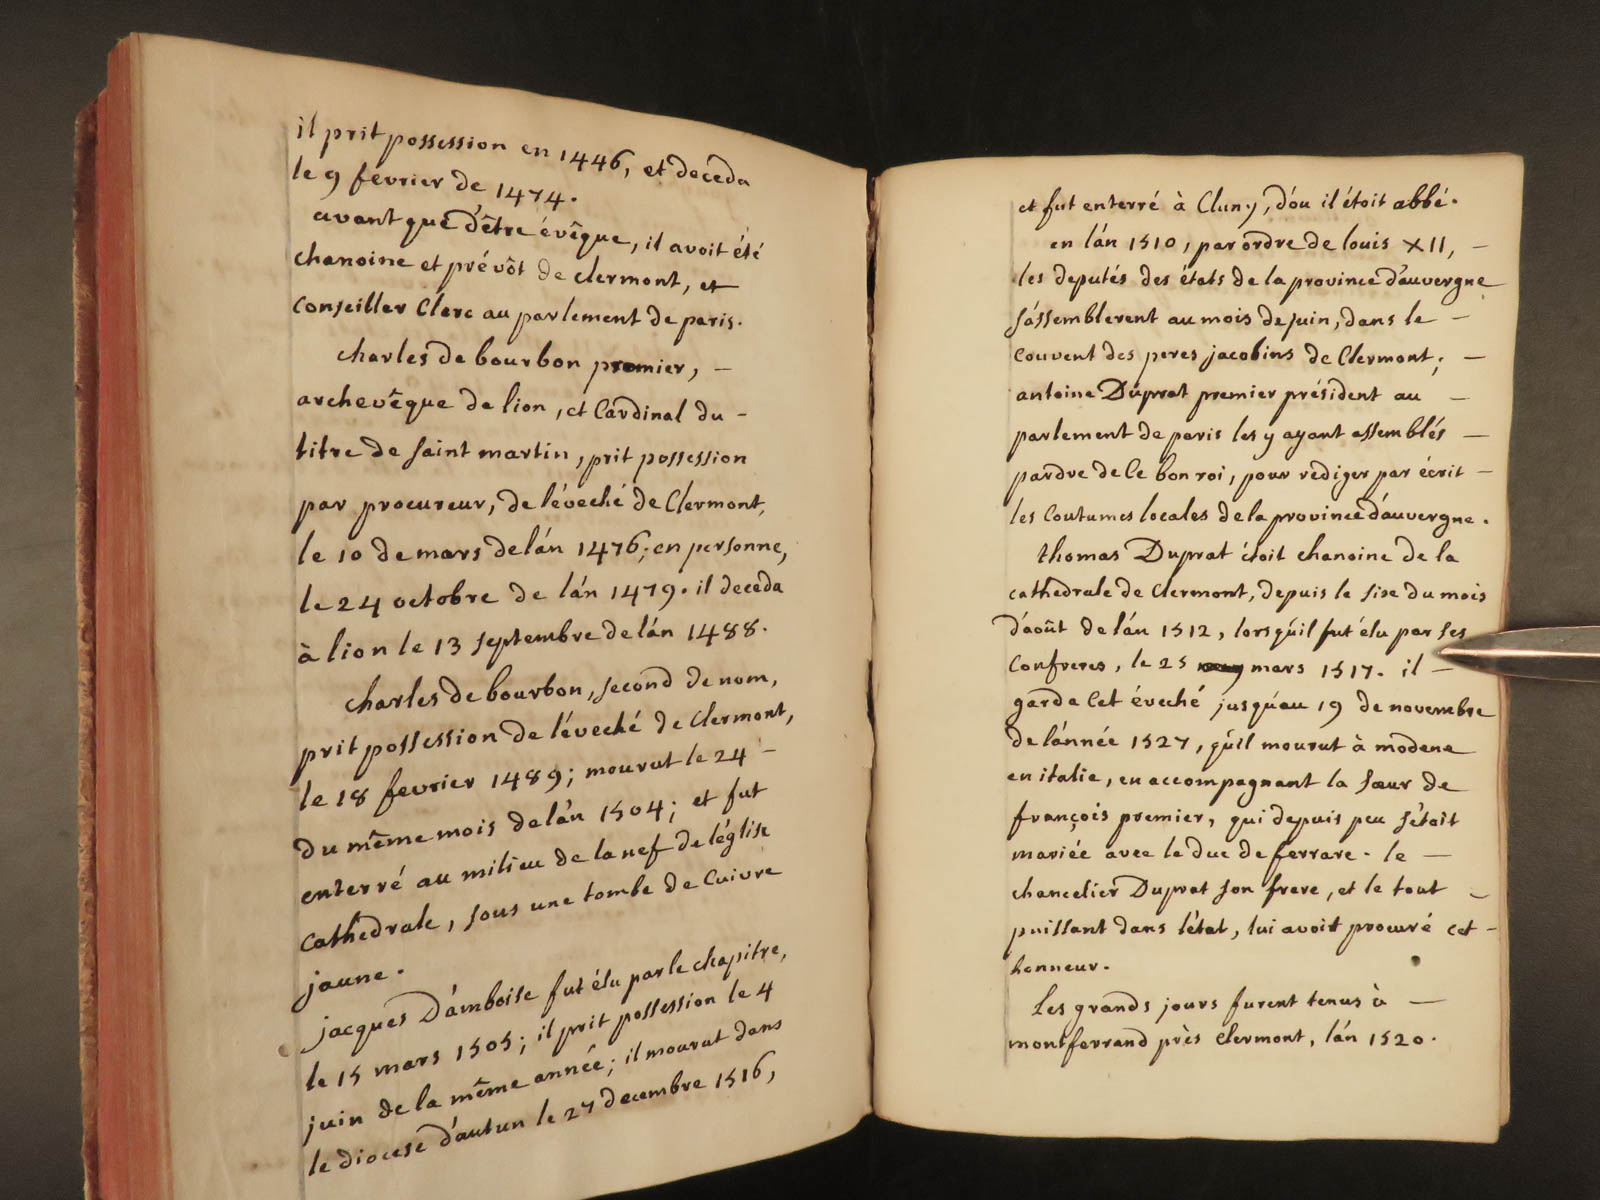 il prit possession en 1446, et deceda
le 9 fevrier de 1474.
avant que d'être évêque, il avoit été
chanoine et prévôt de clermont, et
conseiller clerc au parlement de paris.
charles de bourbon premier, —
archevêque de lion, et cardinal du -
titre de saint martin, prit possession
par procureur, de l'éveché de Clermont,
le 10 de mars de l'án 1476; en personne,
le 24 octobre de l'án 1479. il deceda
à lion le 13 septembre de l'án 1488.
charles de bourbon, second de nom,
prit possession de l'éveché de Clermont,
le 18 fevrier 1489; mourut le 24 —
du même mois de l'án 1504; et fut
enterré au milieu de la nef de l'église
cathedrale, sous une tombe de cuivre
jaune.
jacques D'amboise fut élu par le chapitre,
le 15 mars 1505; il prit possession le 4
juin de la même année; il mourut dans
le diocese d'autun le 27 decembre 1516,
et fut enterré à Cluny, d'óu il étoit abbé.
en l'án 1510, par ordre de louis XII, —
les deputés des états de la province d'auvergne
s'assemblerent au mois de juin, dans le —
couvent des peres jacobins de Clermont; —
antoine Duprat premier président au —
parlement de paris les y ayant assemblés —
pardre de ce bon roi, pour rediger par écrit —
les coutumes locales de la province d'auvergne.
thomas Duprat étoit chanoine de la
cathedrale de Clermont, depuis le sise du mois
d'août de l'án 1512, lorsqu'il fut élu par ses
confreres, le 25 mars 1517. il —
garda cet éveché jusqu'au 19 de novembre
de l'année 1527, qu'il mourut à modene
en italie, en accompagnant la sœur de
françois premier, qui depuis peu s'étoit
mariée avec le duc de ferrare. le —
chancelier Duprat son frere, et le tout —
puissant dans l'état, lui avoit procuré cet -
honneur.
Les grands jours furent tenus à —
montferrand près clermont, l'án 1520.